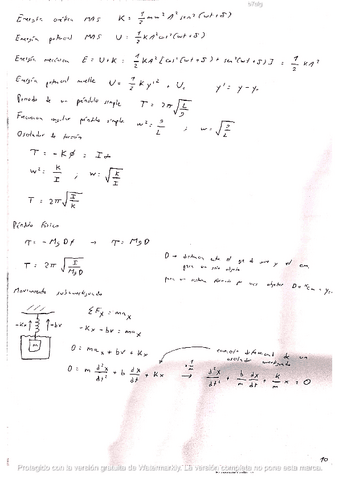 Energía cinética MAS K = 1/2 mω² A² sen² (ωt + δ)
Energía potencial MAS U = 1/2 K A² cos² (ωt + δ)
Energía mecánica E = U + K = 1/2 K A² [cos² (ωt + δ) + sen² (ωt + δ)] = 1/2 K A²
Energía potencial muelle U = 1/2 K y'² + U₀ y' = y - y₀
Periodo de un péndulo simple T = 2π√(L/g)
Frecuencia angular péndulo simple ω² = g/L ; ω = √(g/L)
Oscilador de torsión
τ = -Kφ = Iα
ω² = K/I ; ω = √(K/I)
T = 2π√(I/K)
Péndulo físico
τ = -MgDφ → τ = MgD
T = 2π√(I/MgD)
D → distancia entre el eje de giro y el cm
para un solo objeto
Movimiento subamortiguado
ΣFₓ = maₓ
-Kx ↑ ↑ -bv
-Kx - bv = maₓ
m
0 = maₓ + bv + Kx
ecuación diferencial de un
oscilador amortiguado
0 = m d²x/dt² + b dx/dt + Kx → d²x/dt² + b/m dx/dt + K/m x = 0
10
Protegido con la versión gratuita de Watermarkly. La versión completa no pone esta marca.